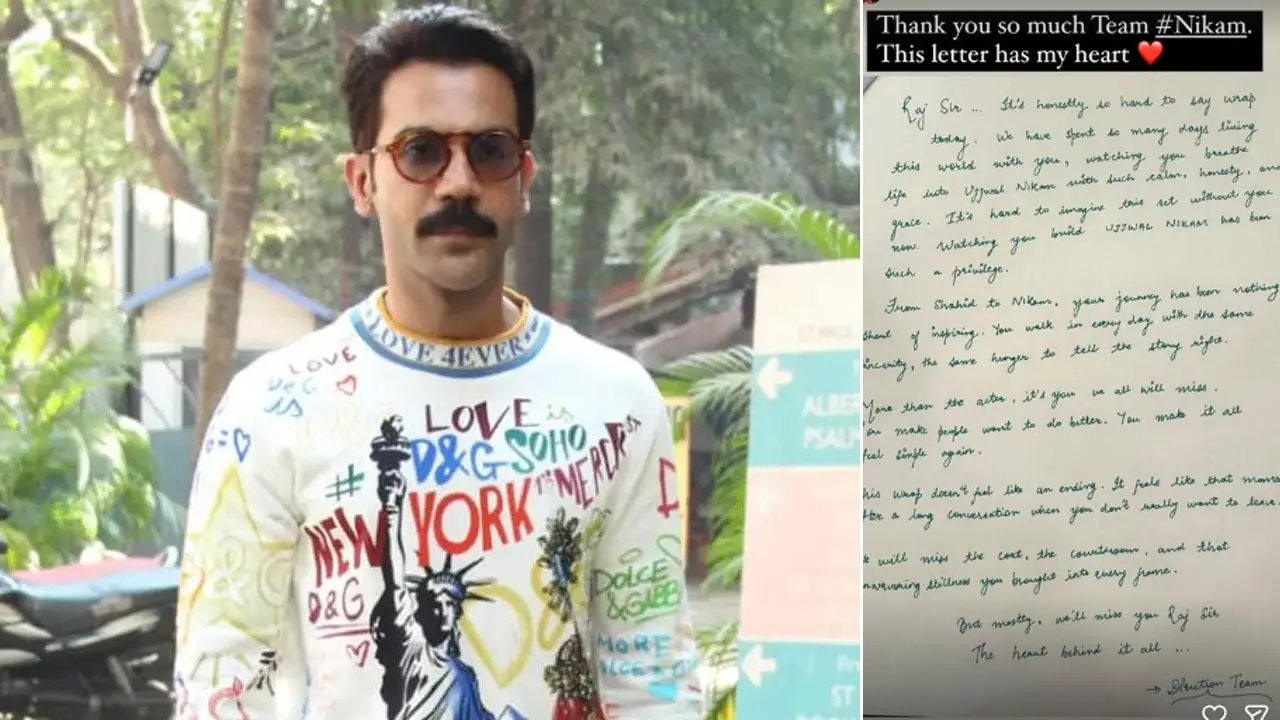 LOVE 4EVER
LOVE
D&G
LOVE is
D&G SOHO
#
NEW YORK
D&G
DOLCE
&GABB
MORE
ALBER
PSALM
ST
Thank you so much Team #Nikam.
This letter has my heart ❤️
Raj Sir ... It's honestly so hard to say wrap
today. We have spent so many days living
this world with you, watching you breathe
life into Ujjwal Nikam with such calm, honesty, and
grace. It's hard to imagine this set without you
now. Watching you build UJJWAL NIKAM has been
such a privilege.
From Shahid to Nikam, your journey has been nothing
short of inspiring. You walk in every day with the same
sincerity, the same hunger to tell the story right.
More than the actor, it's you we all will miss.
You make people want to do better. You make it all
feel simple again.
his wrap doesn't feel like an ending. It feels like that mome
after a long conversation when you don't really want to leave
will miss the coat, the courtroom, and that
unwavering stillness you brought into every frame.
But mostly, we'll miss you Raj Sir
The heart behind it all ...
→ Direction Team